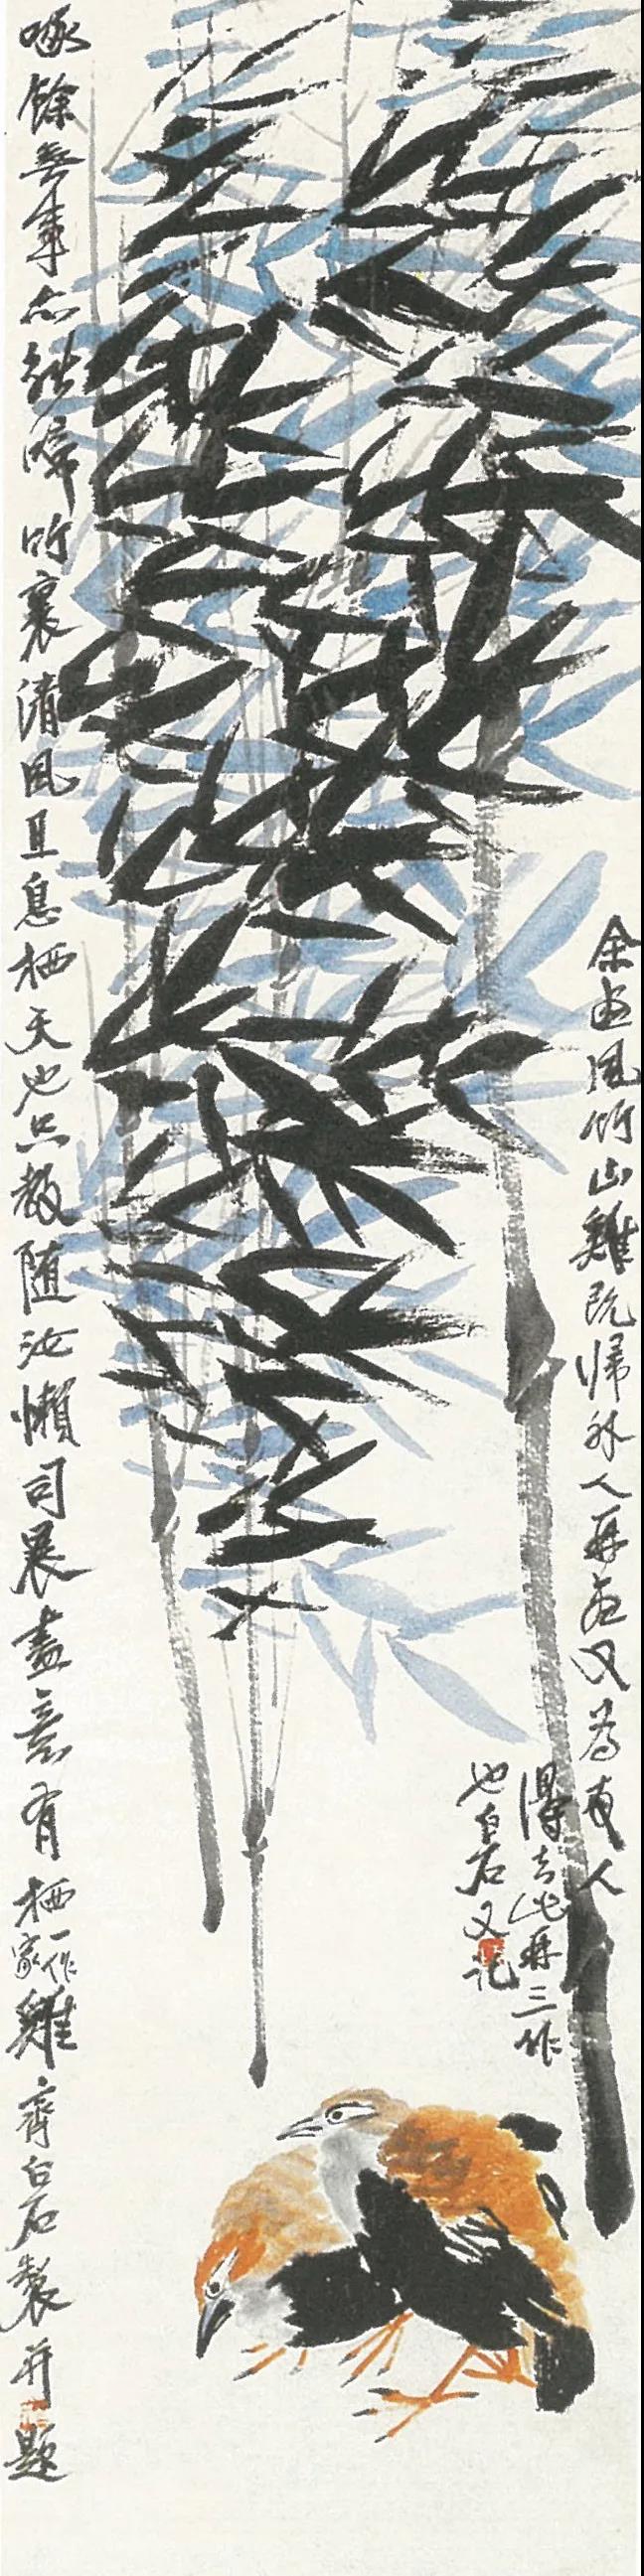 余画風竹山雞既歸外人再画又為友人
得去此再三作
也白石又記
啄餘無事亦能啼竹裏清風且息栖天也只教随汝懶司晨盡意有栖一作家雞齊白石製并題